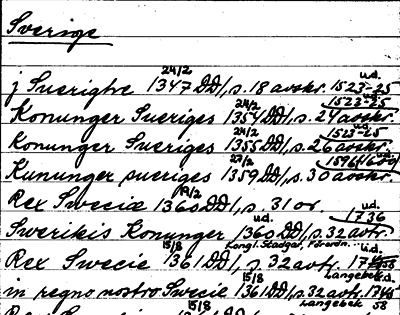 Sverige
j Suerighe 24/2 1347 DD, s. 18 avskr. u.d. 1523-25
Konunger Sueriges 24/2 1354 DD, s. 24 avskr. u.d. 1523-25
Konunger Sueriges 24/2 1355 DD, s. 26 avskr. 1523-25
Kununger sueriges 27/2 1359 DD, s. 30 avskr.
Rex Sweciæ 19/2 1360 DD, s. 31 or.
Swerikis Konunger u.d. 1360 DD, s. 32 avtr. u.d. 1736
Rex Swecie 15/8 1361 DD, s. 32 avtr. Langebek u.d.
in regno nostro Swecie 15/8 1361 DD, s. 32 avtr. Langebek
15/8 58